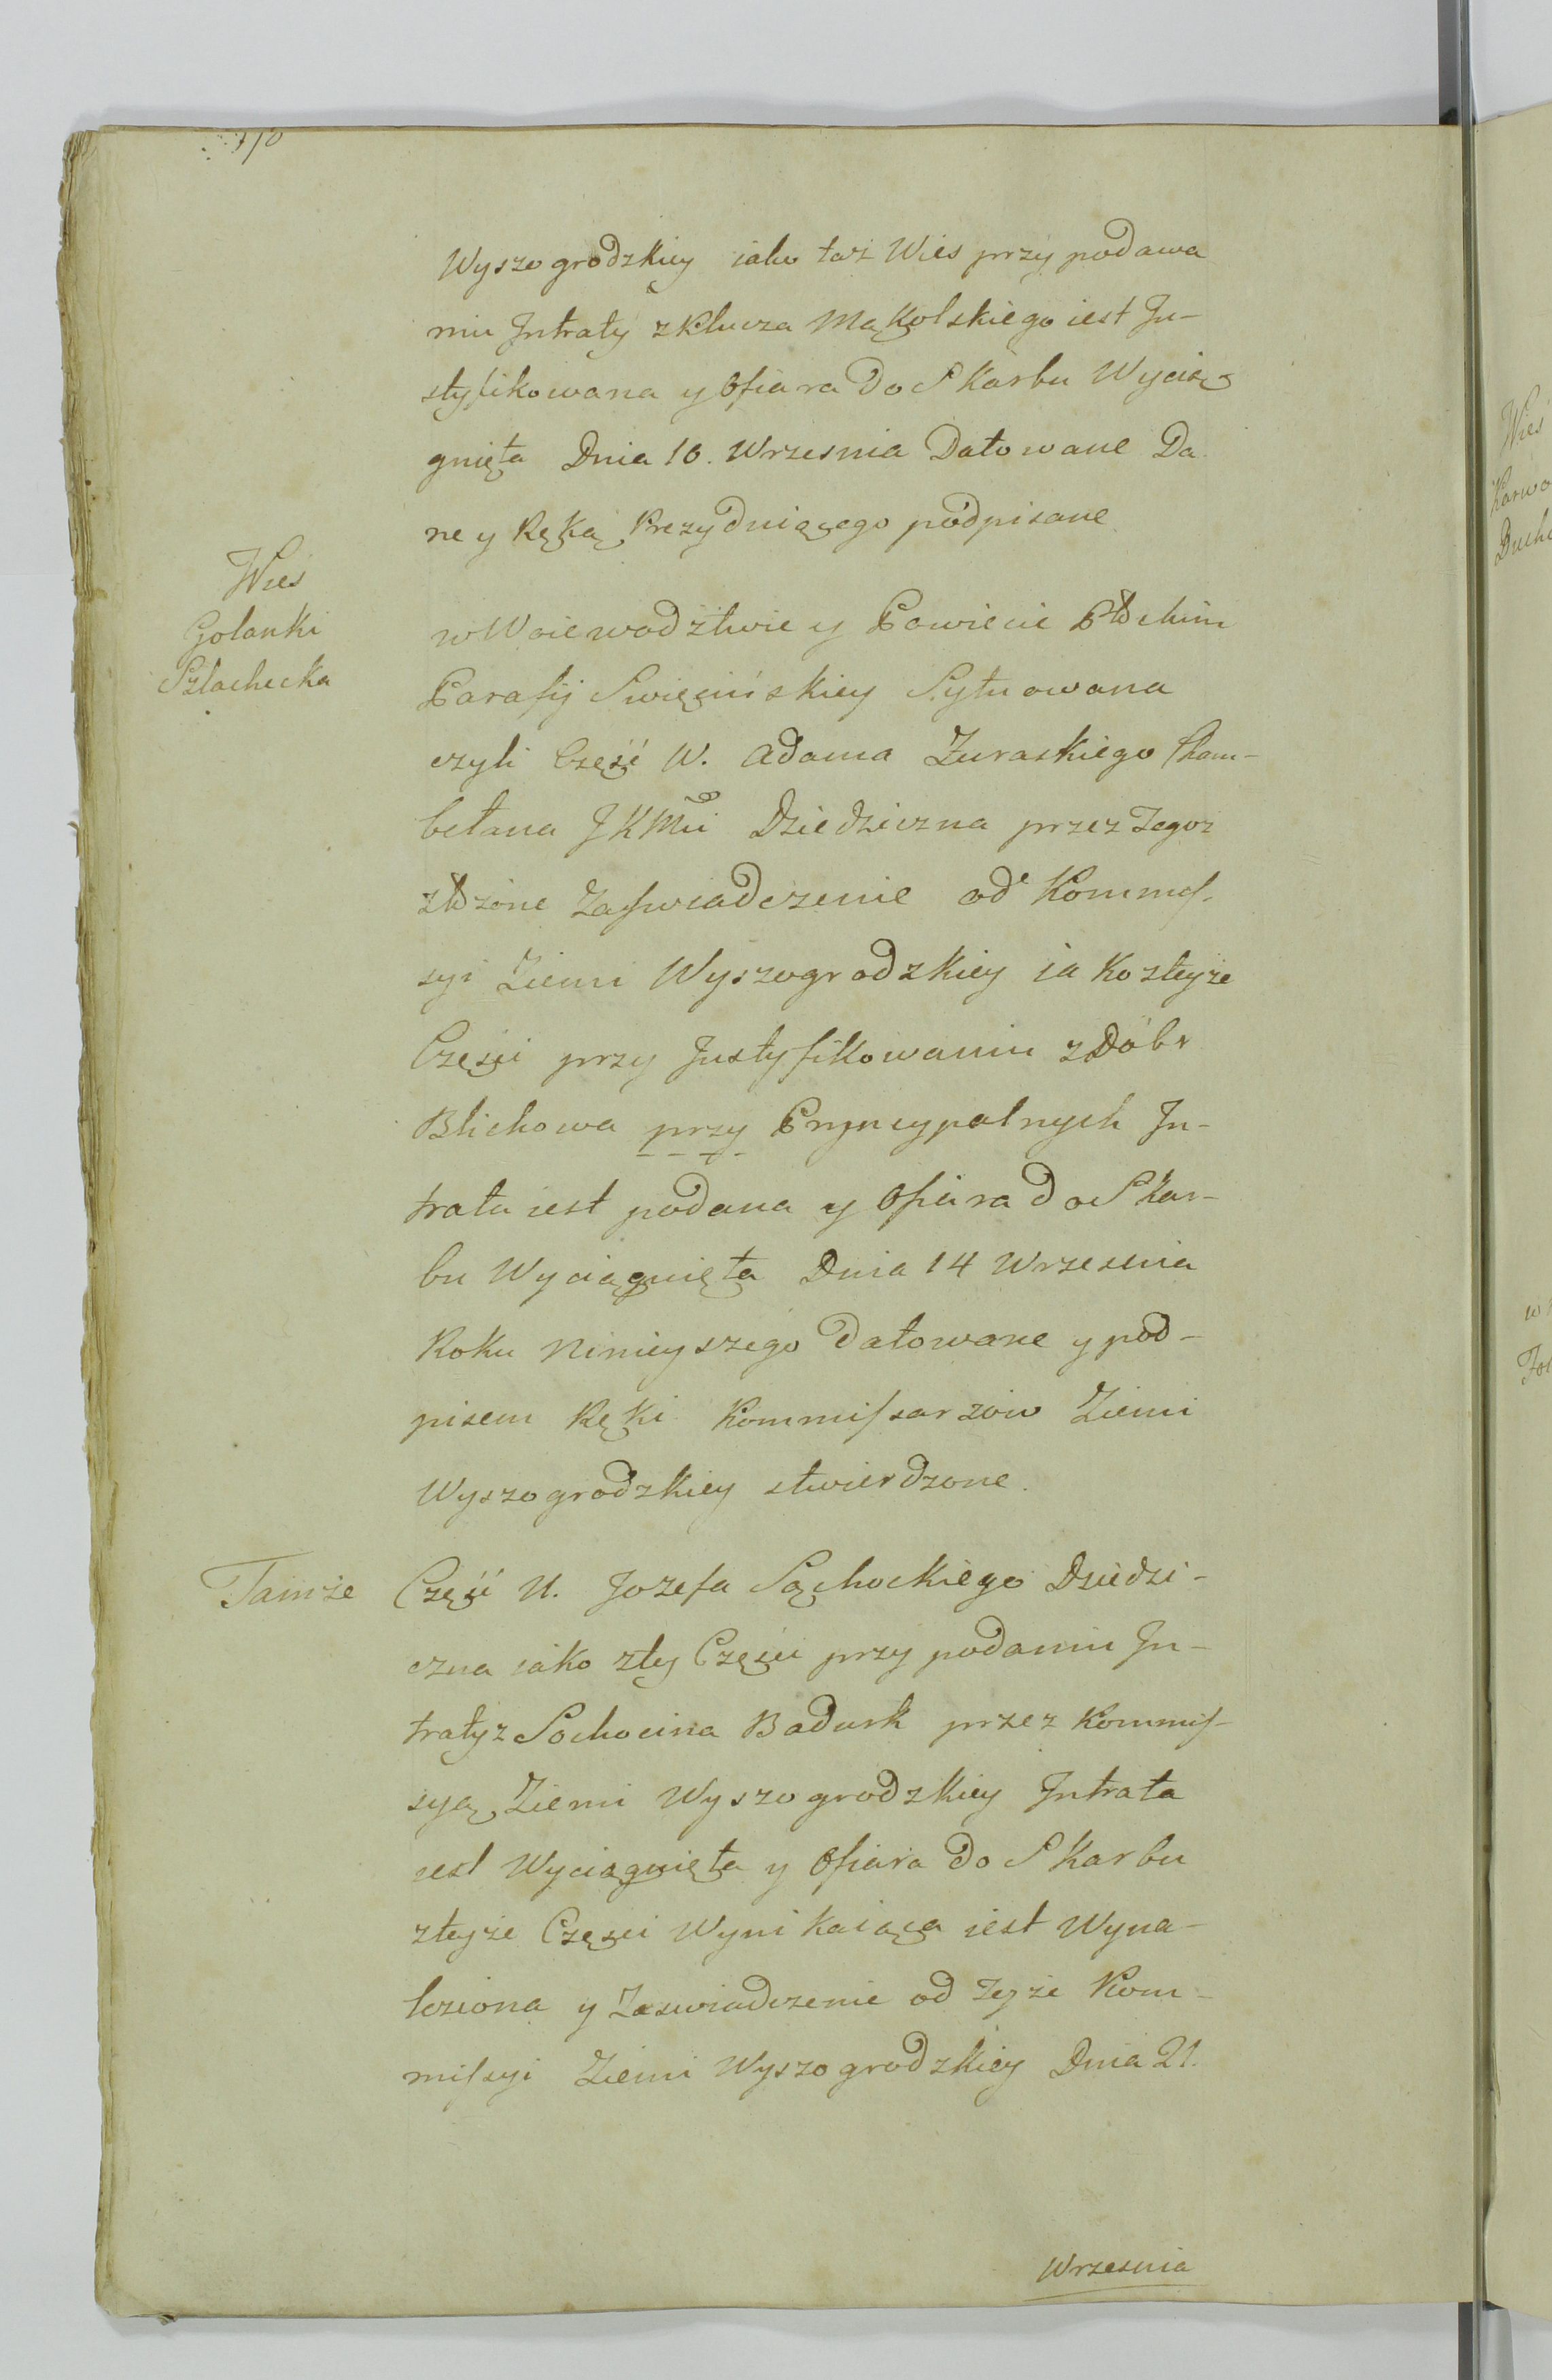 Wyszogrodzkiey iako taż Wies przy podawa
niu Intraty z Klucza Mąkolskiego iest Ju-
styfikowana y Ofiara do Skarbu Wycią
gnięta Dnia 10. Wrzesnia Datowane Da
ne y Ręką Prezyduiącego podpisane
Wies
Golanki
Szlachecka
w Woiewodztwie y Powiecie Płockim
Parafij Swięcińskiey Sytuowana
czyli Część W. Adama Zuraskiego Cham-
belana JKMci Dziedziczna przez Tegoz
złożone Zaswiadczenie od Kommis-
syi Ziemi Wyszogrodzkiey iako z teyże
Części przy Justyfikowaniu z Dóbr
Blichowa przy Pryncypalnych In-
trata iest podana y Ofiara do Skar-
bu Wyciągnięta Dnia 14 Wrzesnia
Roku Ninieyszego Datowane y pod-
pisem Ręki Kommissarzow Ziemi
Wyszogrodzkiey stwierdzone.
Tamże
Część U. Jozefa Sąchockiego Dziedzi-
czna iako z tey Części przy podaniu In-
traty z Sochocina Badurk przez Kommis-
syą Ziemi Wyszogrodzkiey Intrata
iest Wyciągnięta y Ofiara do Skarbu
z teyże Części Wynikaiąca iest Wyna-
leziona y Zaswiadczenie od Teyże Kom-
missyi Ziemi Wyszogrodzkiey Dnia 21.
Wrzesnia
Wies